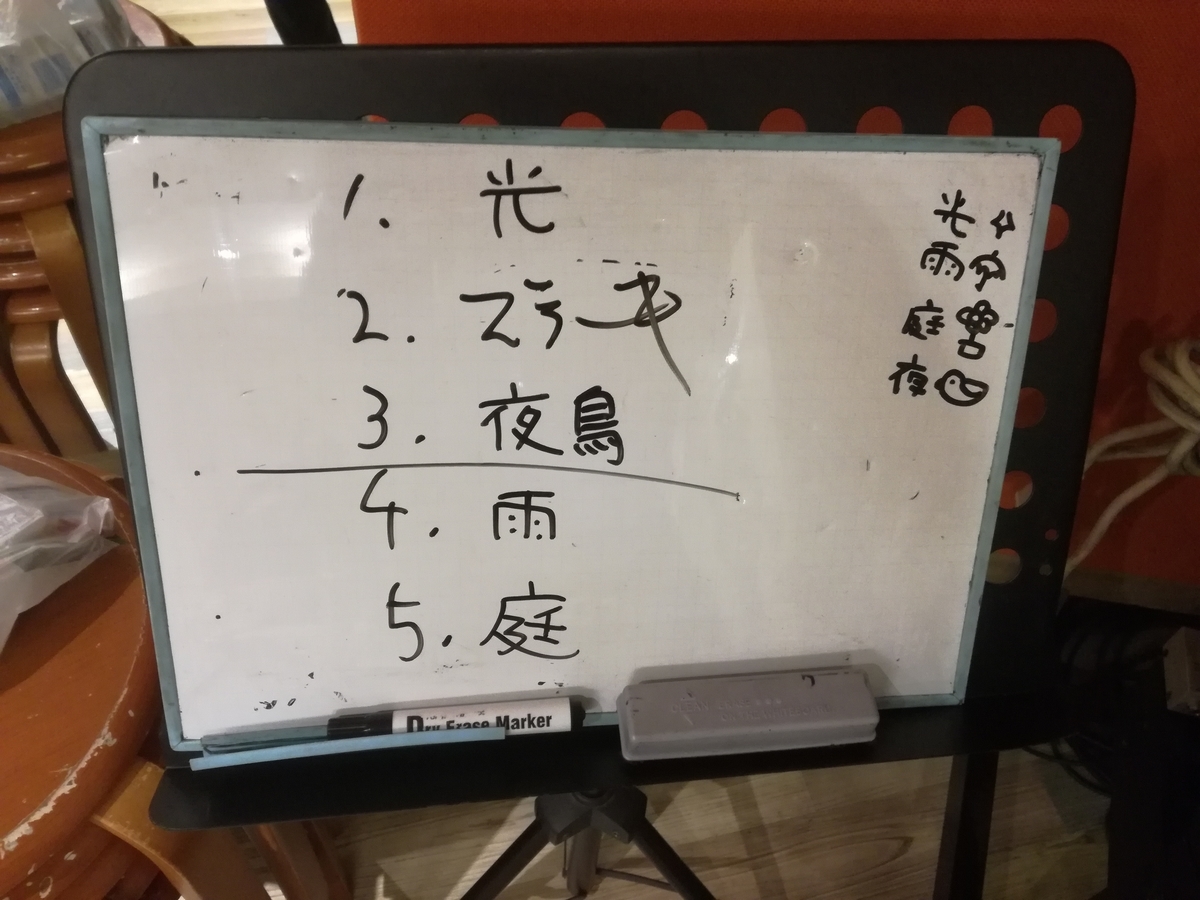 1. 光
2.
3. 夜鳥
4. 雨
5. 庭
光
雨
庭
夜
Dry Erase Marker